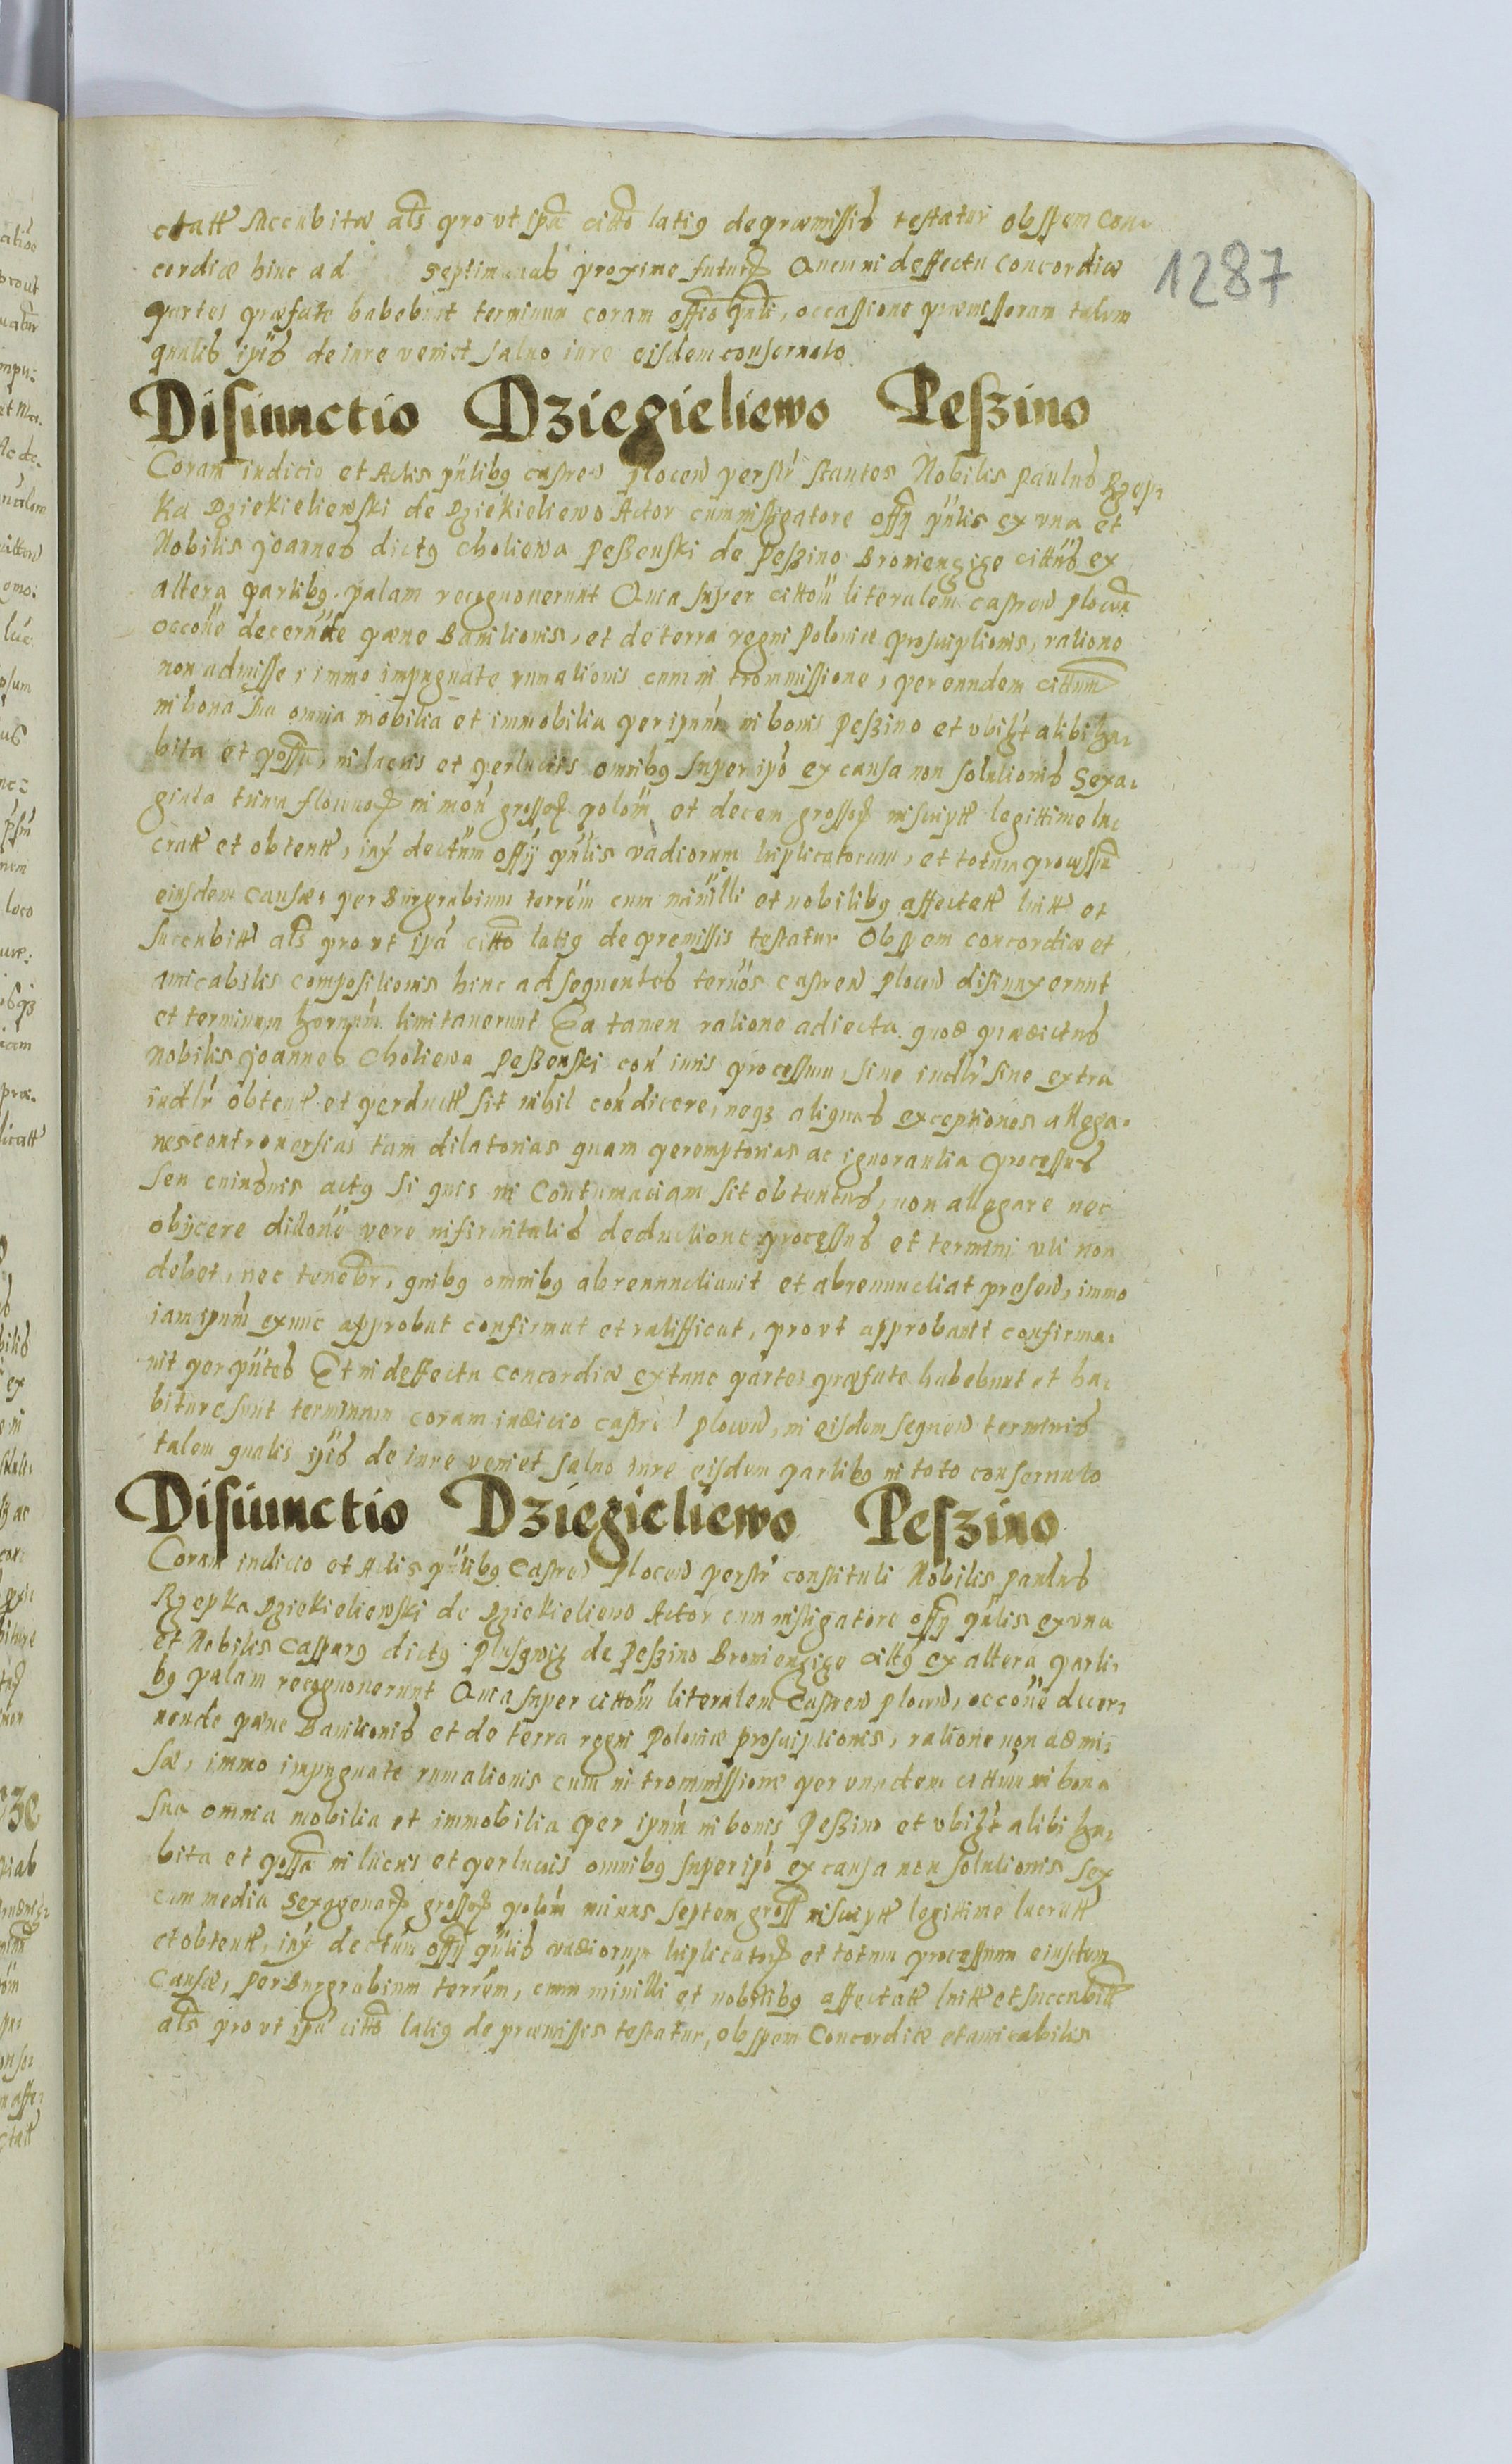 ctatt succubitae als pro vt ipa citto latig de praemissis testatur Ob spem con-
cordiae hinc ad septimanas proxime futur Qua in deffectu Concordiae
partes praefate habebunt terminum coram offio pnti, occassione praemissorum talem
qualis ipis de iure veniet saluo iure eisdem conseruato
Disiunctio Dziegieliewo Peszino
Coram iudicio et Actis pntibg castren plocen persir stantes Nobilis Paulus Rzep-
ka Dziekieliewski de Dziekieliewo Actor cum instigatore offy pntis ex vna et
Nobilis Joannes dictg Choliewa Peszenski de Peszino Bronienzize cittus ex
altera partibg palam recognouerunt Quia super cittom literalem castren plocen
occone decernnde paene Banitionis, et de terra regni Poloniae proscriptionis, ratione
non admissae, immo impugnate rumationis cum intromissione, per eundem cittum
in bona sua omnia mobilia et immobilia per ipum in bonis Peszino et vbiuis alibi ha-
bita et possa, in lucris et perlucris omnibg super ipo ex causa non solutionis Sexa-
ginta trium florenor in mon grossor polon et decem grossor inscript legittime lu-
cratt et obtent, iny dectum offy pntis vadiorum triplicatorum, et totum processu
eiusdem causae, per Burgrabium terrem cum ministli et nobilibg affectatt luitt et
succubitt als pro vt ipa citto latig de premissis testatur Ob spem concordiae et
amicabilis compositionis hinc ad sequentes termos castren plocen disiunxerunt
et terminum horum limitauerunt Ea tamen ratione adiecta quod praedictus
Nobilis Joannes Choliewa Peszenski con iuris processum, siue iudlr siue extra
iudlr obtent et perductt sit nihil condicere, neqz aliquas exceptiones allega-
nes controuersias tam dilatorias quam peremptorias ac ignorantia processus
seu cuiusuis actg si quis in Contumaciam sit obtentus, non allegare nec
obycere dillone vere infirmitatis deductione processus et termini vti non
debet, nec tenebr, quibg omnibg abrenunctiauit et abrenunctiat presen, immo
iam ipum exnunc approbat confirmat et ratifficat, pro vt approbauit confirma-
uit per pntes Et in deffectu Concordiae extunc partes praefate habebunt et ha-
biturae sunt terminum coram iudicio castren plocen, in eisdem sequen terminis
talem qualis ipis de iure veniet saluo iure eisdem partibg in toto conseruato
Disiunctio Dziegieliewo Peszino
Coram iudicio et Actis pntibg Castren plocen persir constituti Nobilis Paulus
Rzepka Dziekieliewski de Dziekieliewo Actor cum instigatore offy pntis ex vna
et Nobilis Casparg dictg Plusgwiz de Peszino Bronienzize cittg ex altera parti-
bg palam recognouerunt Quia super cittom literalem Castren plocen, occone decer-
nende paene Banitionis et de terra regni Poloniae proscriptionis, ratione non admis-
sae, immo impugnate rumationis cum intromissione per eundem cittum in bona
sua omnia mobilia et immobilia per ipum in bonis Peszino et vbiuis alibi ha-
bita et possa in lucris et perlucris omnibg super ipo ex causa non solutionis sex
cum media sexagenar grossor polon minus septem gross inscript legittime lucratt
et obtent, iny dectum offy pntis vadiorum triplicator et totum processum eiusdem
Causae, per Burgrabium terrem, cum ministli et nobilibg affectatt luitt et succubitt
als pro vt ipa citto latig de praemissis testatur, ob spem Concordiae et amicabilis
1287